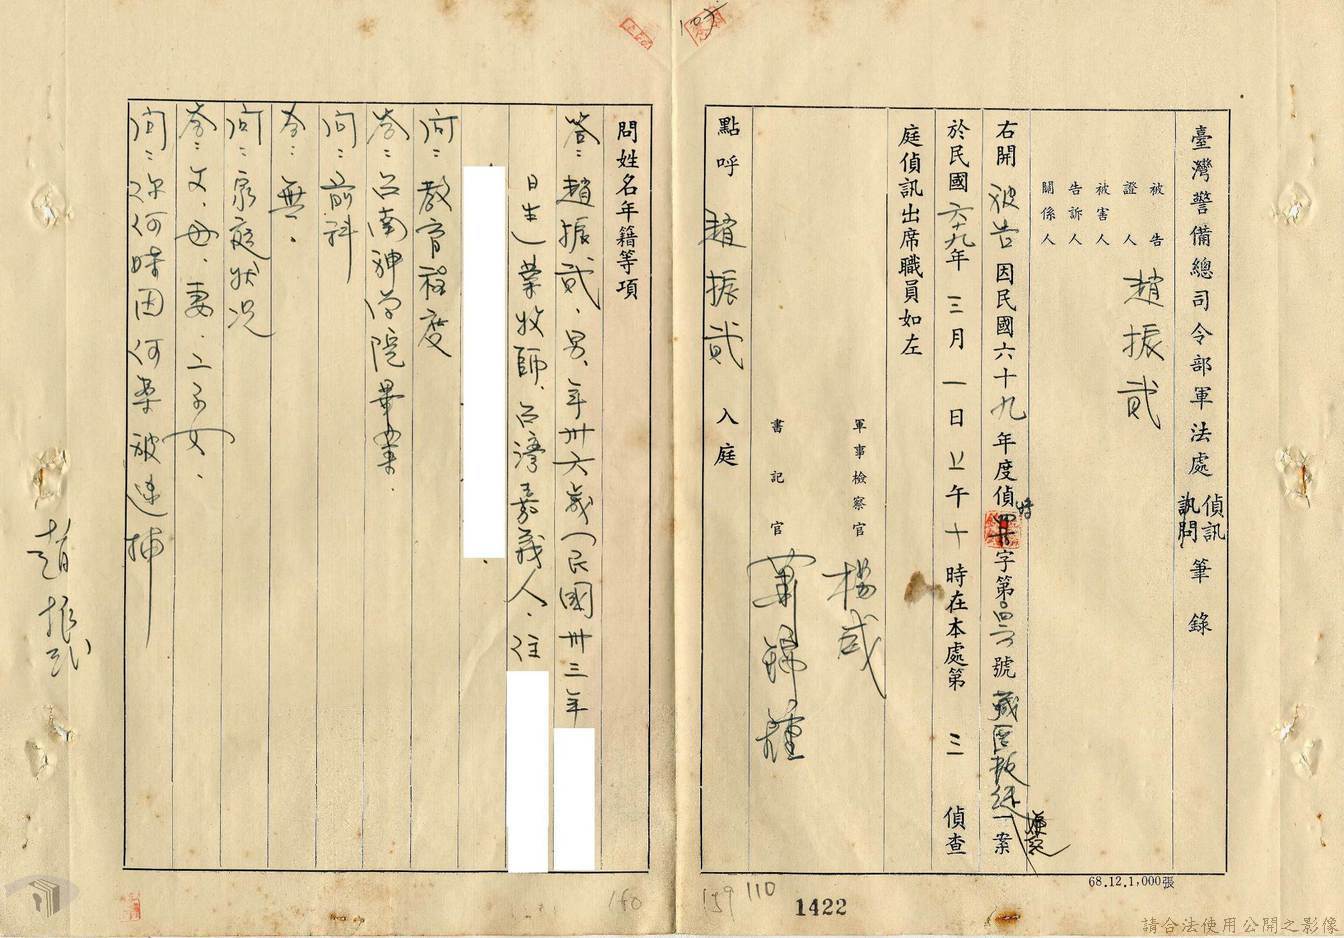 臺灣警備總司令部軍法處
偵訊
訊問
筆錄
被告 趙振貳
證人
被害人
告訴人
關係人
右開被告因民國六十九年度偵特字第〇四六號藏匿叛徒一案
嫌疑
於民國六十九年三月一日上午十時在本處第三偵查
庭偵訊出席職員如左
軍事檢察官 楊咸
書記官 蕭錦種
點呼 趙振貳 入庭
問姓名年籍等項
答:趙振貳、男、年卅六歲(民國卅三年
日生)業牧師、台灣嘉義人、住
問:教育程度
答:台南神學院畢業.
問:前科
答:無.
問:家庭狀況
答:父、母、妻、二子女.
問:你何時因何案被逮捕
趙振貳
68.12.1,000張
160
159
110
1422
請合法使用公開之影像